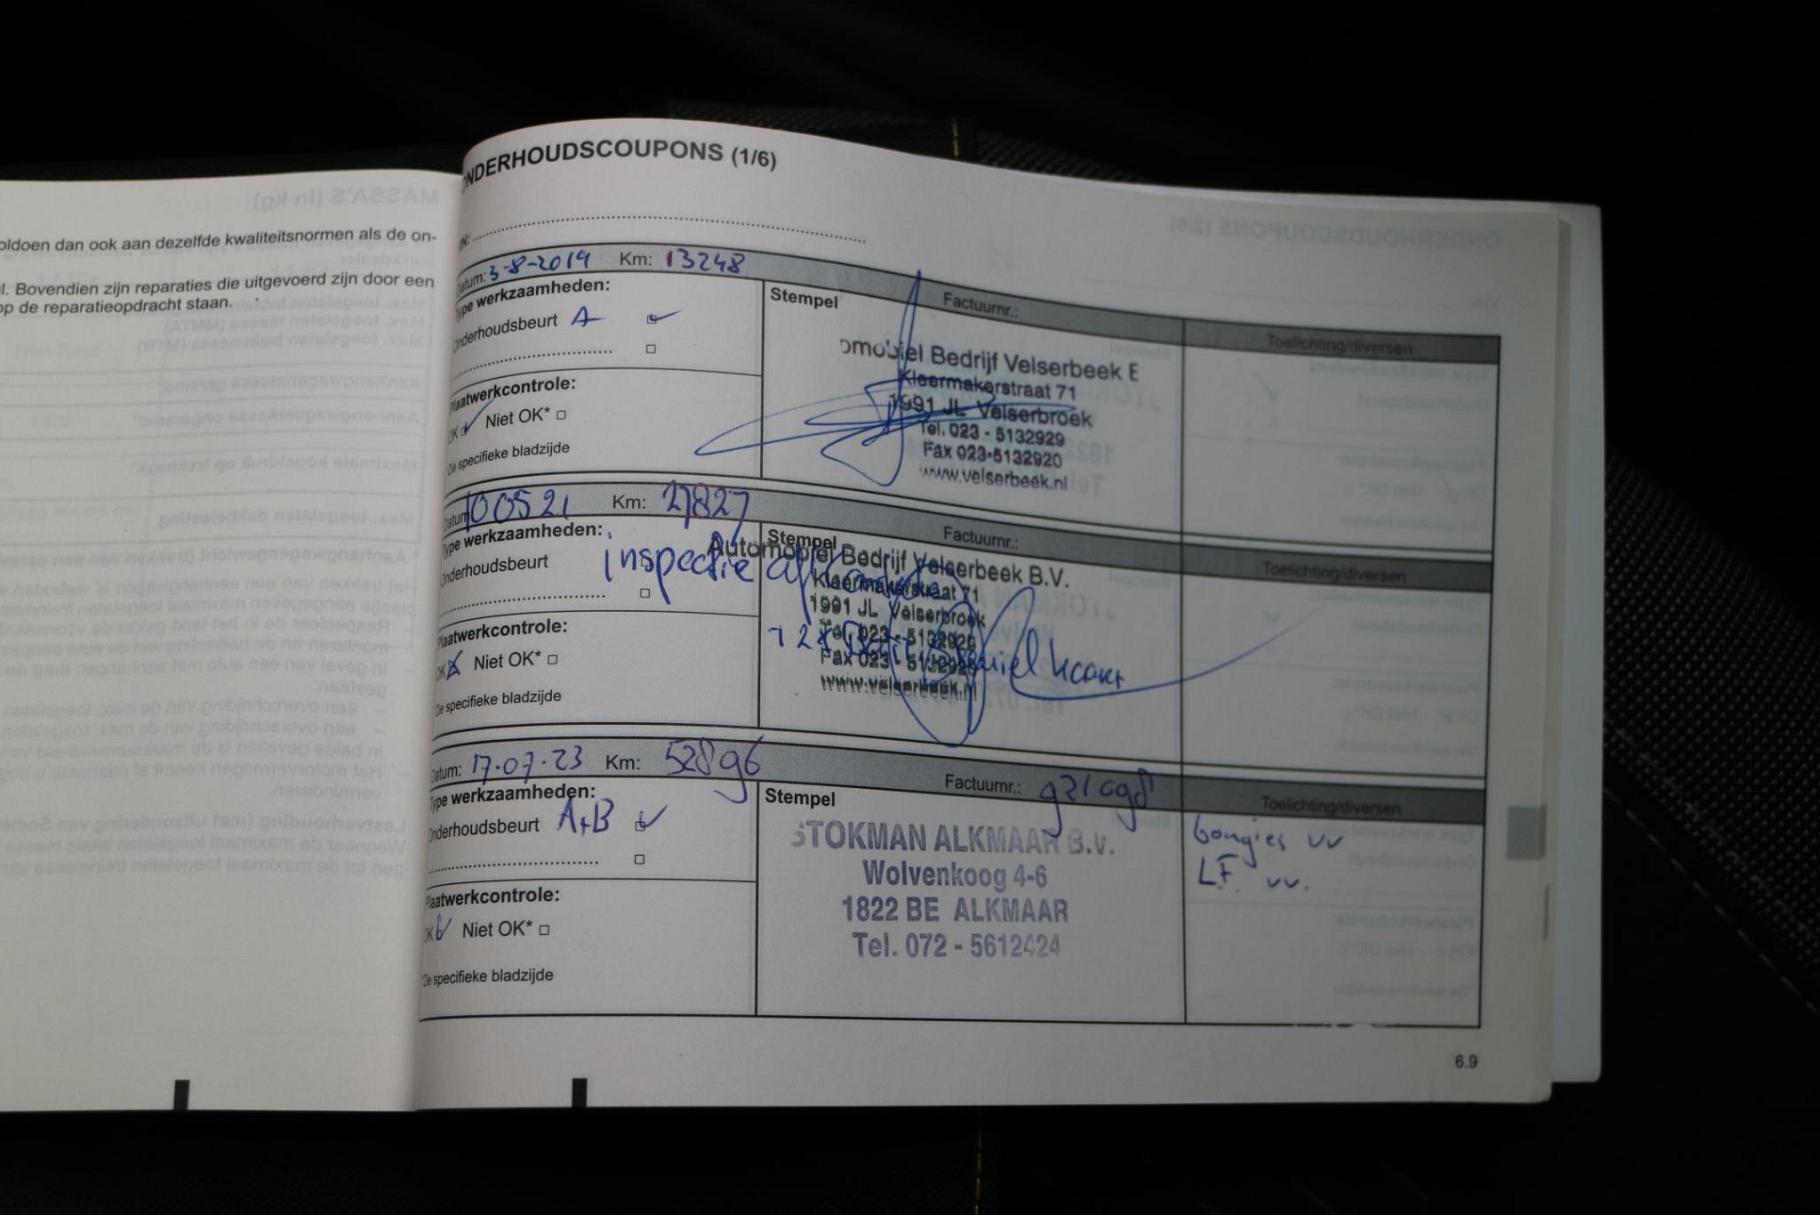 oldoen dan ook aan dezelfde kwaliteitsnormen als de on-
l. Bovendien zijn reparaties die uitgevoerd zijn door een
op de reparatieopdracht staan.
ONDERHOUDSCOUPONS (1/6)
Datum: 3-8-2019 Km: 13248 Factuurnr.:
Type werkzaamheden: Stempel Toelichting/diversen
Onderhoudsbeurt A
omobiel Bedrijf Velserbeek B
Kleermakerstraat 71
1991 JL Velserbroek
Tel. 023 - 5132929
Fax 023-5132920
www.velserbeek.nl
Plaatwerkcontrole:
OK Niet OK*
*Zie specifieke bladzijde
Datum 100521 Km: 27827 Factuurnr.:
Type werkzaamheden: Stempel Toelichting/diversen
Onderhoudsbeurt inspectie
Automobiel Bedrijf Velserbeek B.V.
Kleermakerstraat 71
1991 JL Velserbroek
Tel. 023 - 5132929
Fax 023 - 5132920
www.velserbeek.nl
Plaatwerkcontrole:
OK Niet OK*
*Zie specifieke bladzijde
Datum: 17-07-23 Km: 52896 Factuurnr.:
Type werkzaamheden: Stempel Toelichting/diversen
Onderhoudsbeurt A+B
STOKMAN ALKMAAR B.V.
Wolvenkoog 4-6
1822 BE ALKMAAR
Tel. 072 - 5612424
bougies vv
L.F. vv.
Plaatwerkcontrole:
OK Niet OK*
*Zie specifieke bladzijde
6.9